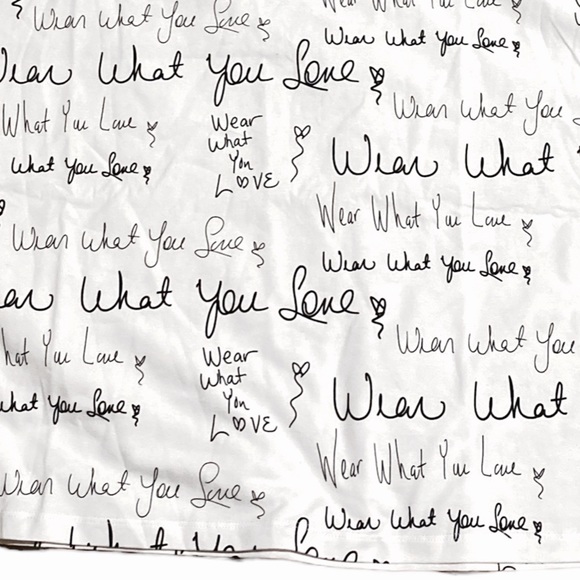 Wear What You Love
Wear What You Love
Wear What You Love
Wear What You Love
Wear What You
What You Love
Wear
What
You
LOVE
Wear What
What You Love
Wear What You Love
Wear What You Love
Wear What You Love
What You Love
Wear What You
What You Love
Wear
What
You
LOVE
Wear What
What You Love
Wear What You Love
Wear What You Love
Wear What You Love